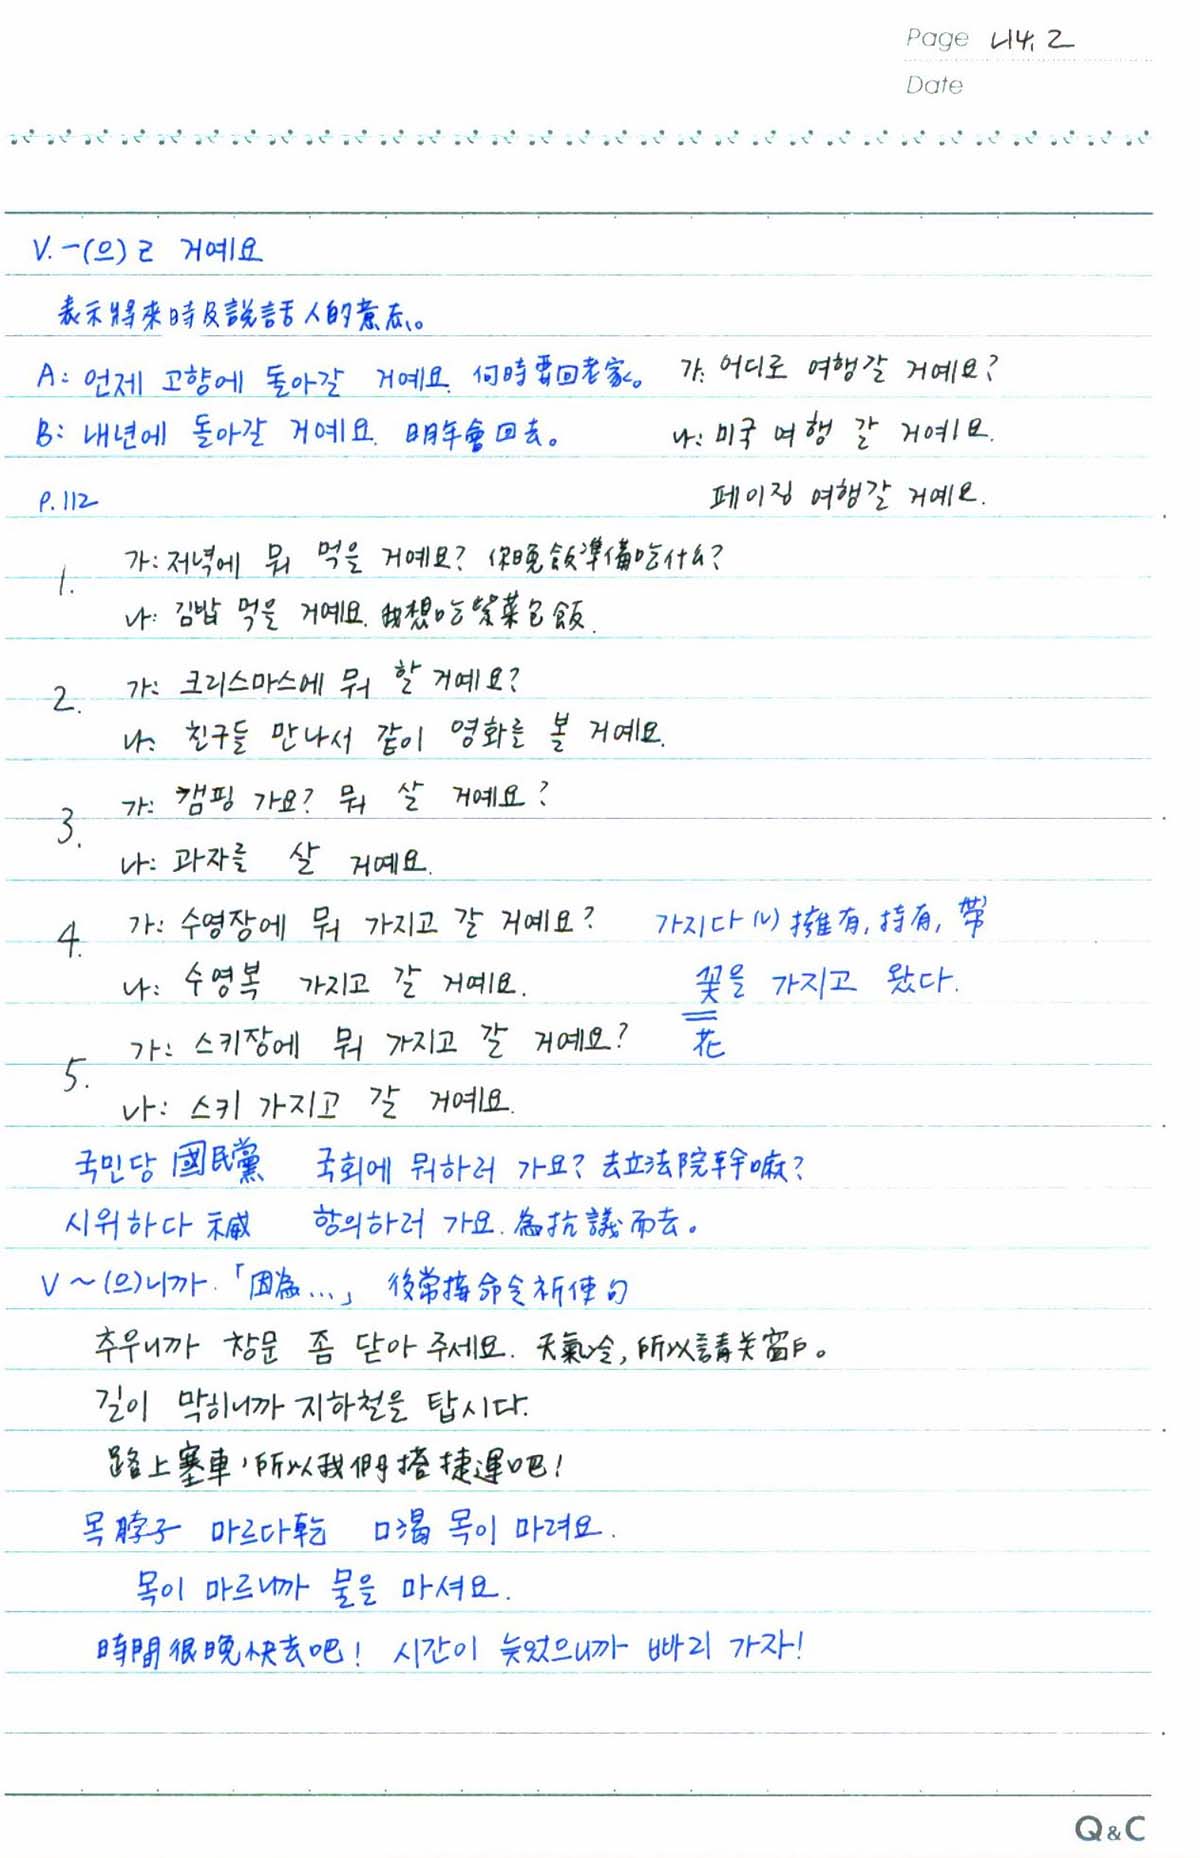 Page 나4. 2
Date
V. -(으)ㄹ 거예요
表示將來時及說話人的意志。
A: 언제 고향에 돌아갈 거예요. 何時要回老家。 가: 어디로 여행갈 거예요?
B: 내년에 돌아갈 거예요. 明年會回去。 나: 미국 여행 갈 거예요.
P.112 페이징 여행갈 거예요.
1. 가: 저녁에 뭐 먹을 거예요? 你晚飯準備吃什么?
나: 김밥 먹을 거예요. 我想吃紫菜包飯.
2. 가: 크리스마스에 뭐 할 거예요?
나: 친구들 만나서 같이 영화를 볼 거예요.
3. 가: 캠핑 가요? 뭐 살 거예요?
나: 과자를 살 거예요.
4. 가: 수영장에 뭐 가지고 갈 거예요? 가지다 (v) 擁有, 持有, 帶
나: 수영복 가지고 갈 거예요. 꽃을 가지고 왔다.
5. 가: 스키장에 뭐 가지고 갈 거예요? 花
나: 스키 가지고 갈 거예요.
국민당 國民黨 국회에 뭐하러 가요? 去立法院幹嘛?
시위하다 示威 항의하러 가요. 為抗議而去。
V ~(으)니까. 「因為...」 後常接命令祈使句
추우니까 창문 좀 닫아 주세요. 天氣冷, 所以請关窗戶。
길이 막히니까 지하철을 탑시다.
路上塞車, 所以我們搭捷運吧!
목 脖子 마르다 乾 口渴 목이 마려요.
목이 마르니까 물을 마셔요.
時間很晚快去吧! 시간이 늦었으니까 빠리 가자!
Q&C